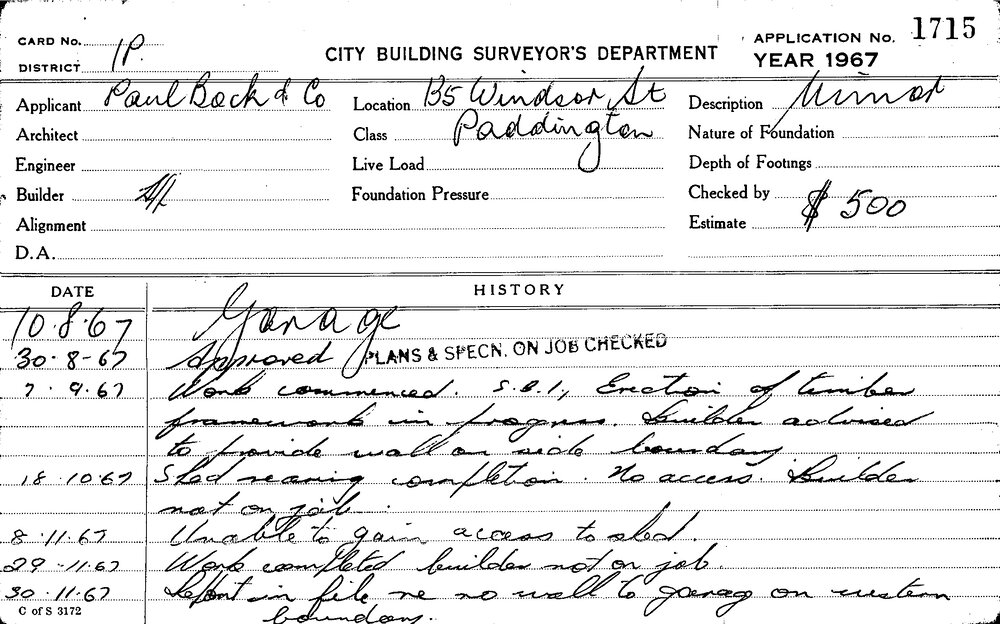 CARD No. 1P.
DISTRICT
CITY BUILDING SURVEYOR'S DEPARTMENT
APPLICATION No. 1715
YEAR 1967
Applicant Paul Bock & Co
Location 135 Windsor St
Description Minor
Architect
Class Paddington
Nature of Foundation
Engineer
Live Load
Depth of Footings
Builder
Foundation Pressure
Checked by
Alignment
Estimate $ 500
D.A.
DATE HISTORY
10.8.67 Garage
30-8-67 Approved PLANS & SPECN. ON JOB CHECKED
7.9.67 Work commenced. S.B.1, Erection of timber
framework in progress. Builder advised
to provide wall on side boundary
18.10.67 Shed nearing completion. No access. Builder
not on job.
8.11.67 Unable to gain access to shed.
29.11.67 Work completed builder not on job.
30.11.67 Report in file re no wall to garag on western
boundary.
C of S 3172